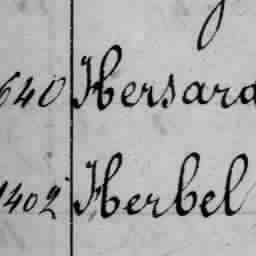 640 Hersard
1402 Herbel